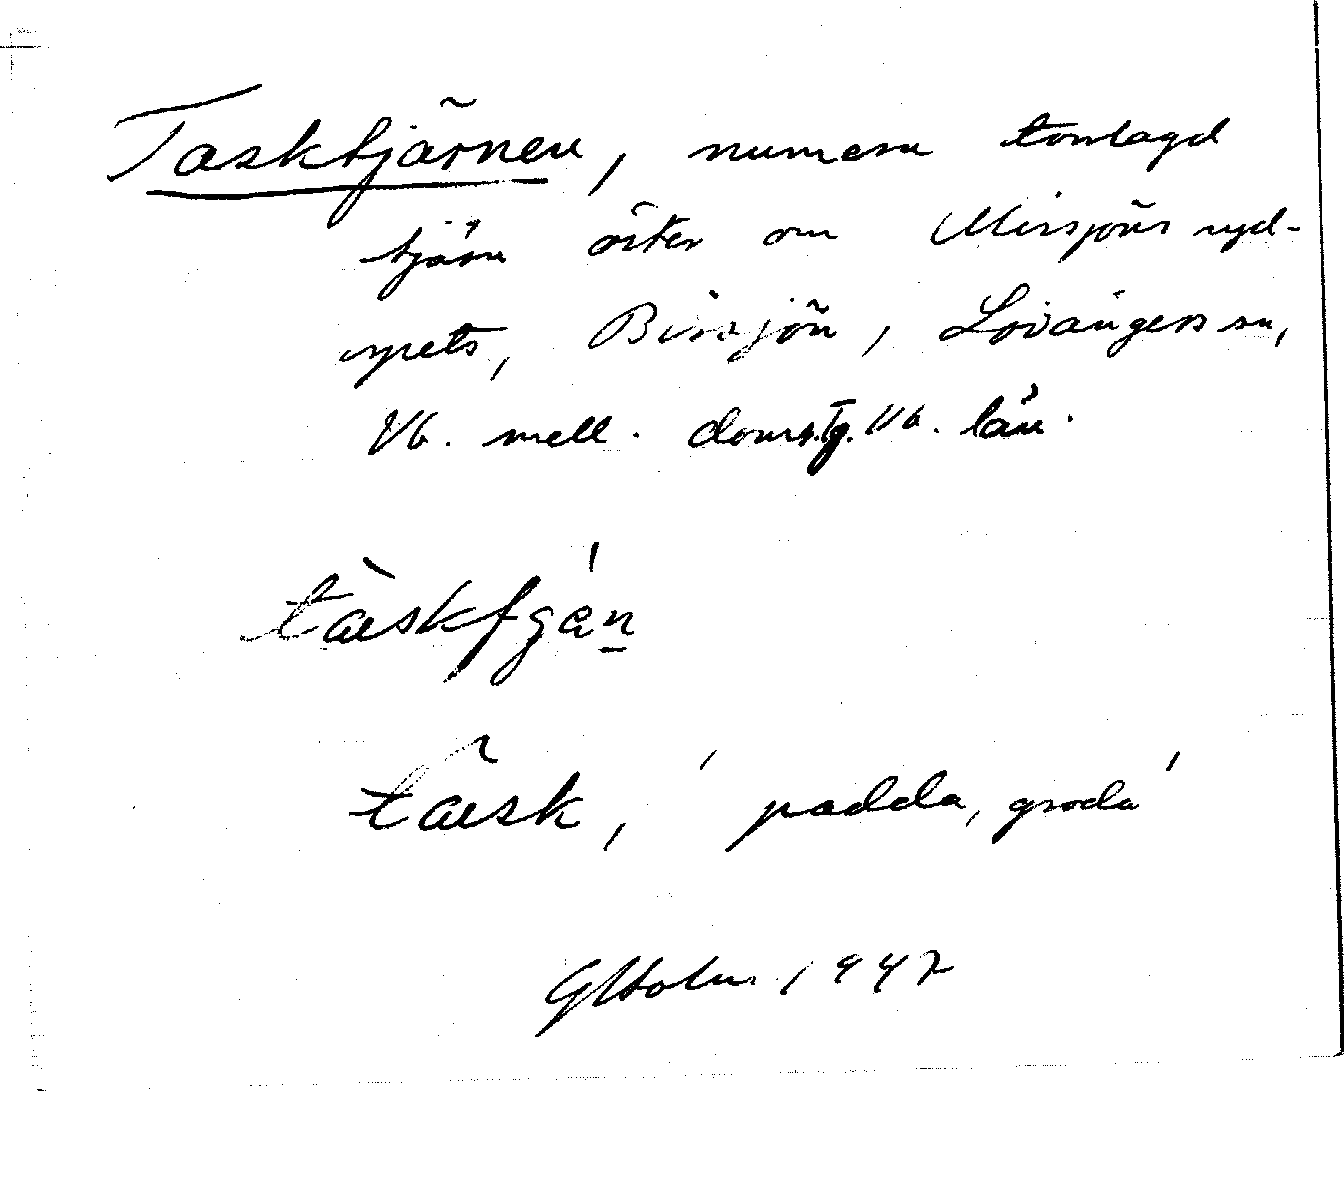 Tasktjärnen, numera torrlagd
tjärn öster om Missjöns syd-
spets, Bissjön, Lövångers sn,
Vb. mell. doms.tg. Vb. län.
tæskfgän
tæsk, 'padda, groda'
GHolm 1947